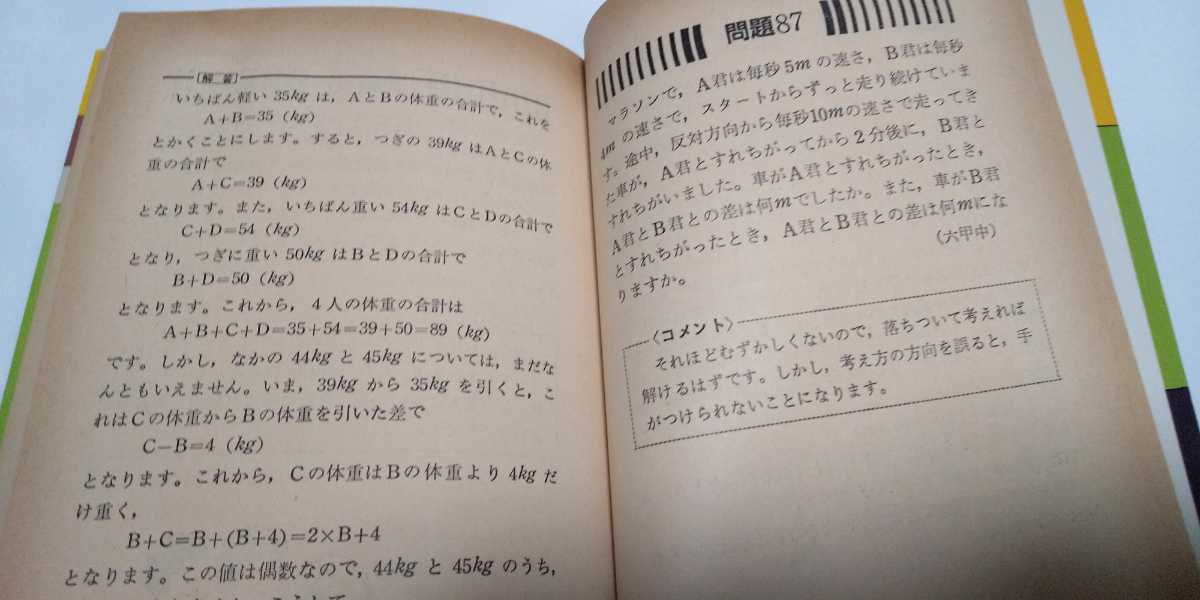 〔解答〕
いちばん軽い 35kg は，AとBの体重の合計で，これを
A+B=35 (kg)
とかくことにします。すると，つぎの 39kg はAとCの体
重の合計で
A+C=39 (kg)
となります。また，いちばん重い 54kg はCとDの合計で
C+D=54 (kg)
となり，つぎに重い 50kg はBとDの合計で
B+D=50 (kg)
となります。これから，4人の体重の合計は
A+B+C+D=35+54=39+50=89 (kg)
です。しかし，なかの 44kg と 45kg については，まだな
んともいえません。いま，39kg から 35kg を引くと，こ
れはCの体重からBの体重を引いた差で
C−B=4 (kg)
となります。これから，Cの体重はBの体重より 4kg だ
け重く，
B+C=B+(B+4)=2×B+4
となります。この値は偶数なので，44kg と 45kg のうち，
問題87
マラソンで，A君は毎秒 5m の速さ，B君は毎秒
4m の速さで，スタートからずっと走り続けていま
す。途中，反対方向から毎秒10mの速さで走ってき
た車が，A君とすれちがってから 2 分後に，B君と
すれちがいました。車がA君とすれちがったとき，
A君とB君との差は何mでしたか。また，車がB君
とすれちがったとき，A君とB君との差は何mにな
りますか。
（六甲中）
〈コメント〉
それほどむずかしくないので，落ちついて考えれば
解けるはずです。しかし，考え方の方向を誤ると，手
がつけられないことになります。